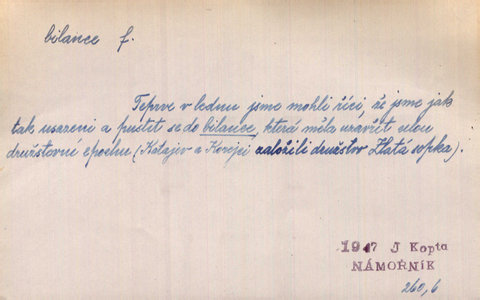 bilance f.
Teprve v lednu jsme mohli říci, že jsme jak
tak usazeni a pustit se do bilance, která měla uzavřít celou
družstevní epochu (Katajev a Korejci založili družstvo Zlatá sopka).
1947 J Kopta
NÁMOŘNÍK
260,6